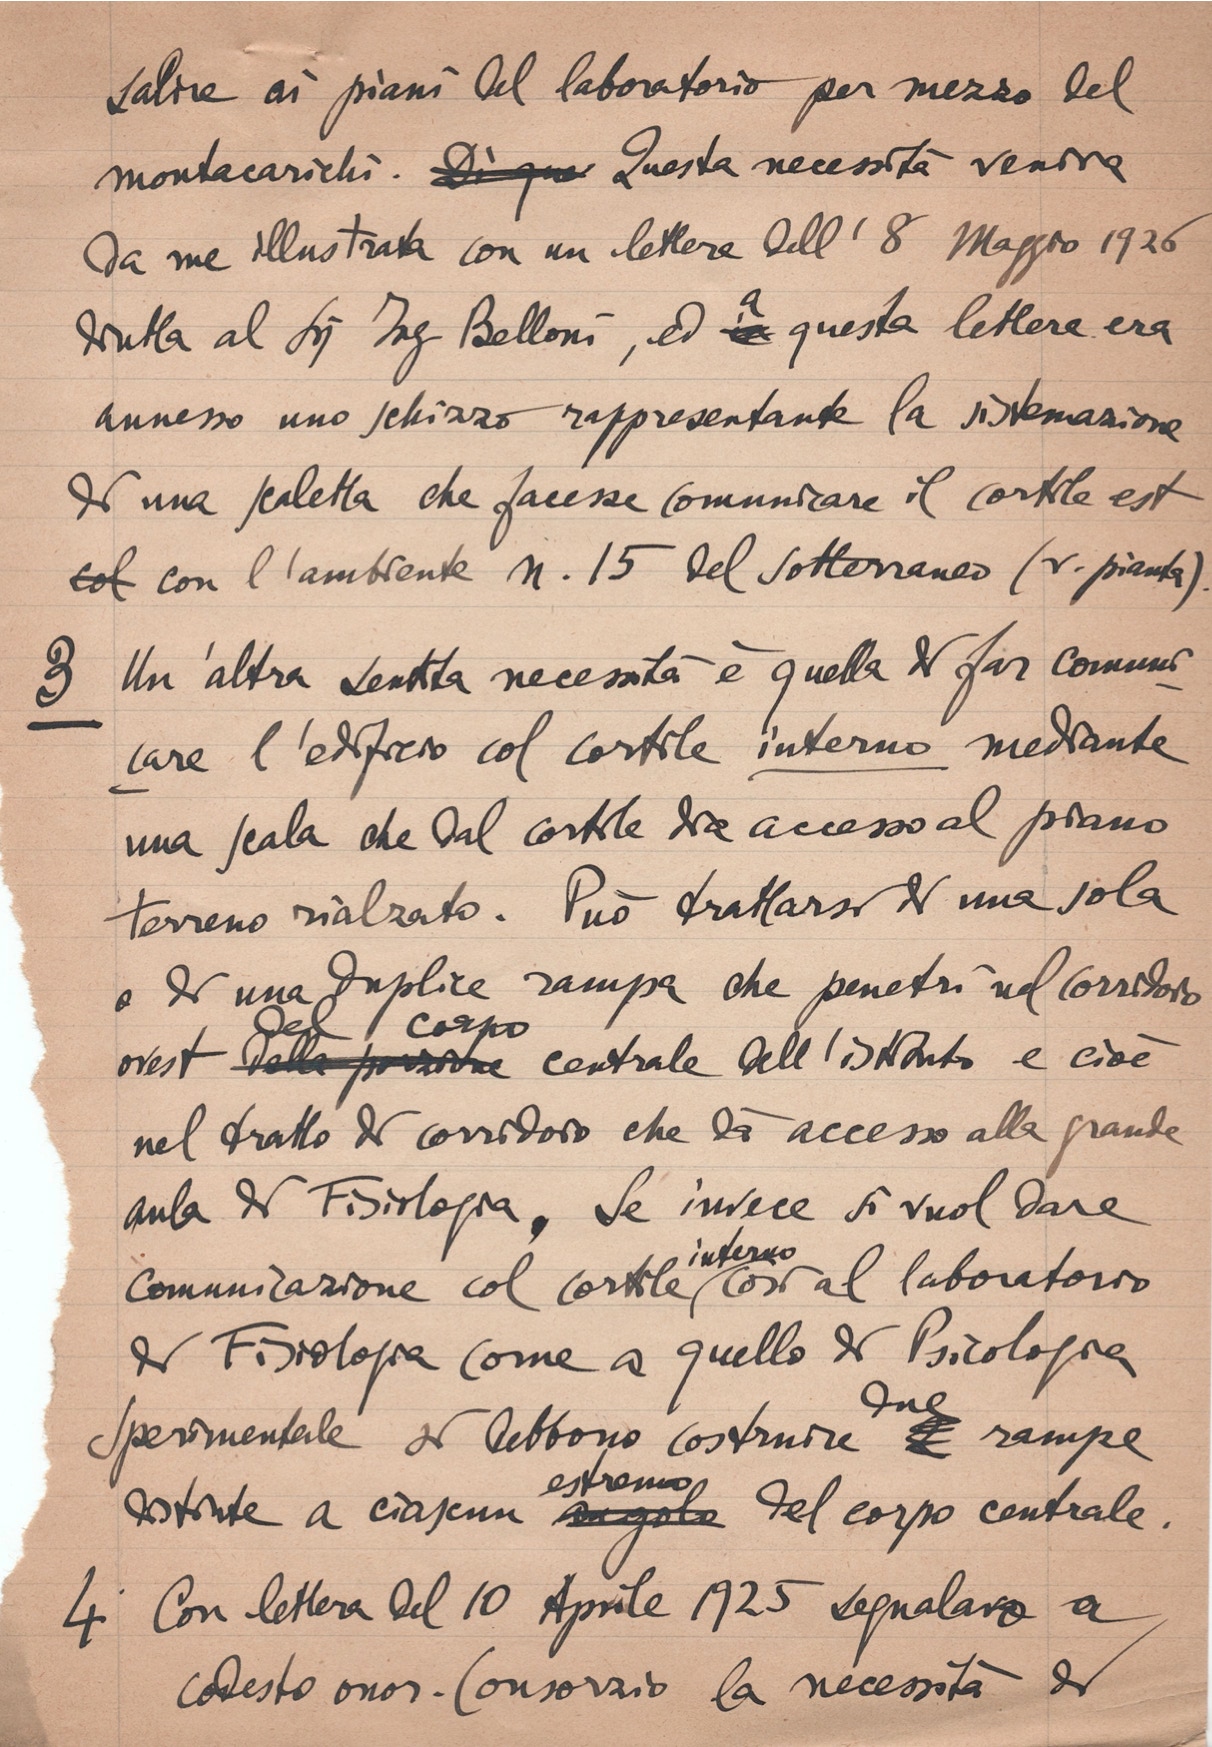 salire ai piani del laboratorio per mezzo del
montacarichi. Di que Questa necessità veniva
da me illustrata con un lettera dell'8 Maggio 1926
diretta al Sig Ing Belloni, ed a questa lettera era
annesso uno schizzo rappresentante la sistemazione
di una scaletta che facesse comunicare il cortile est
col con l'ambiente n. 15 del sotterraneo (v. pianta).
3 Un'altra sentita necessità è quella di far comuni-
care l'edificio col cortile interno mediante
una scala che dal cortile dia accesso al piano
terreno rialzato. Può trattarsi di una sola
o di una duplice rampa che penetri nel corridoio
del corpo
ovest della porzione centrale dell'istituto e cioè
nel tratto di corridoio che dà accesso alla grande
aula di Fisiologia. Se invece si vuol dare
interno
comunicazione col cortile, così al laboratorio
di Fisiologia come a quello di Psicologia
due
sperimentale si debbono costruire rampe
estremo
distinte a ciascun angolo del corpo centrale.
4. Con lettera del 10 Aprile 1925 segnalavo a
codesto onor. Consorzio la necessità di